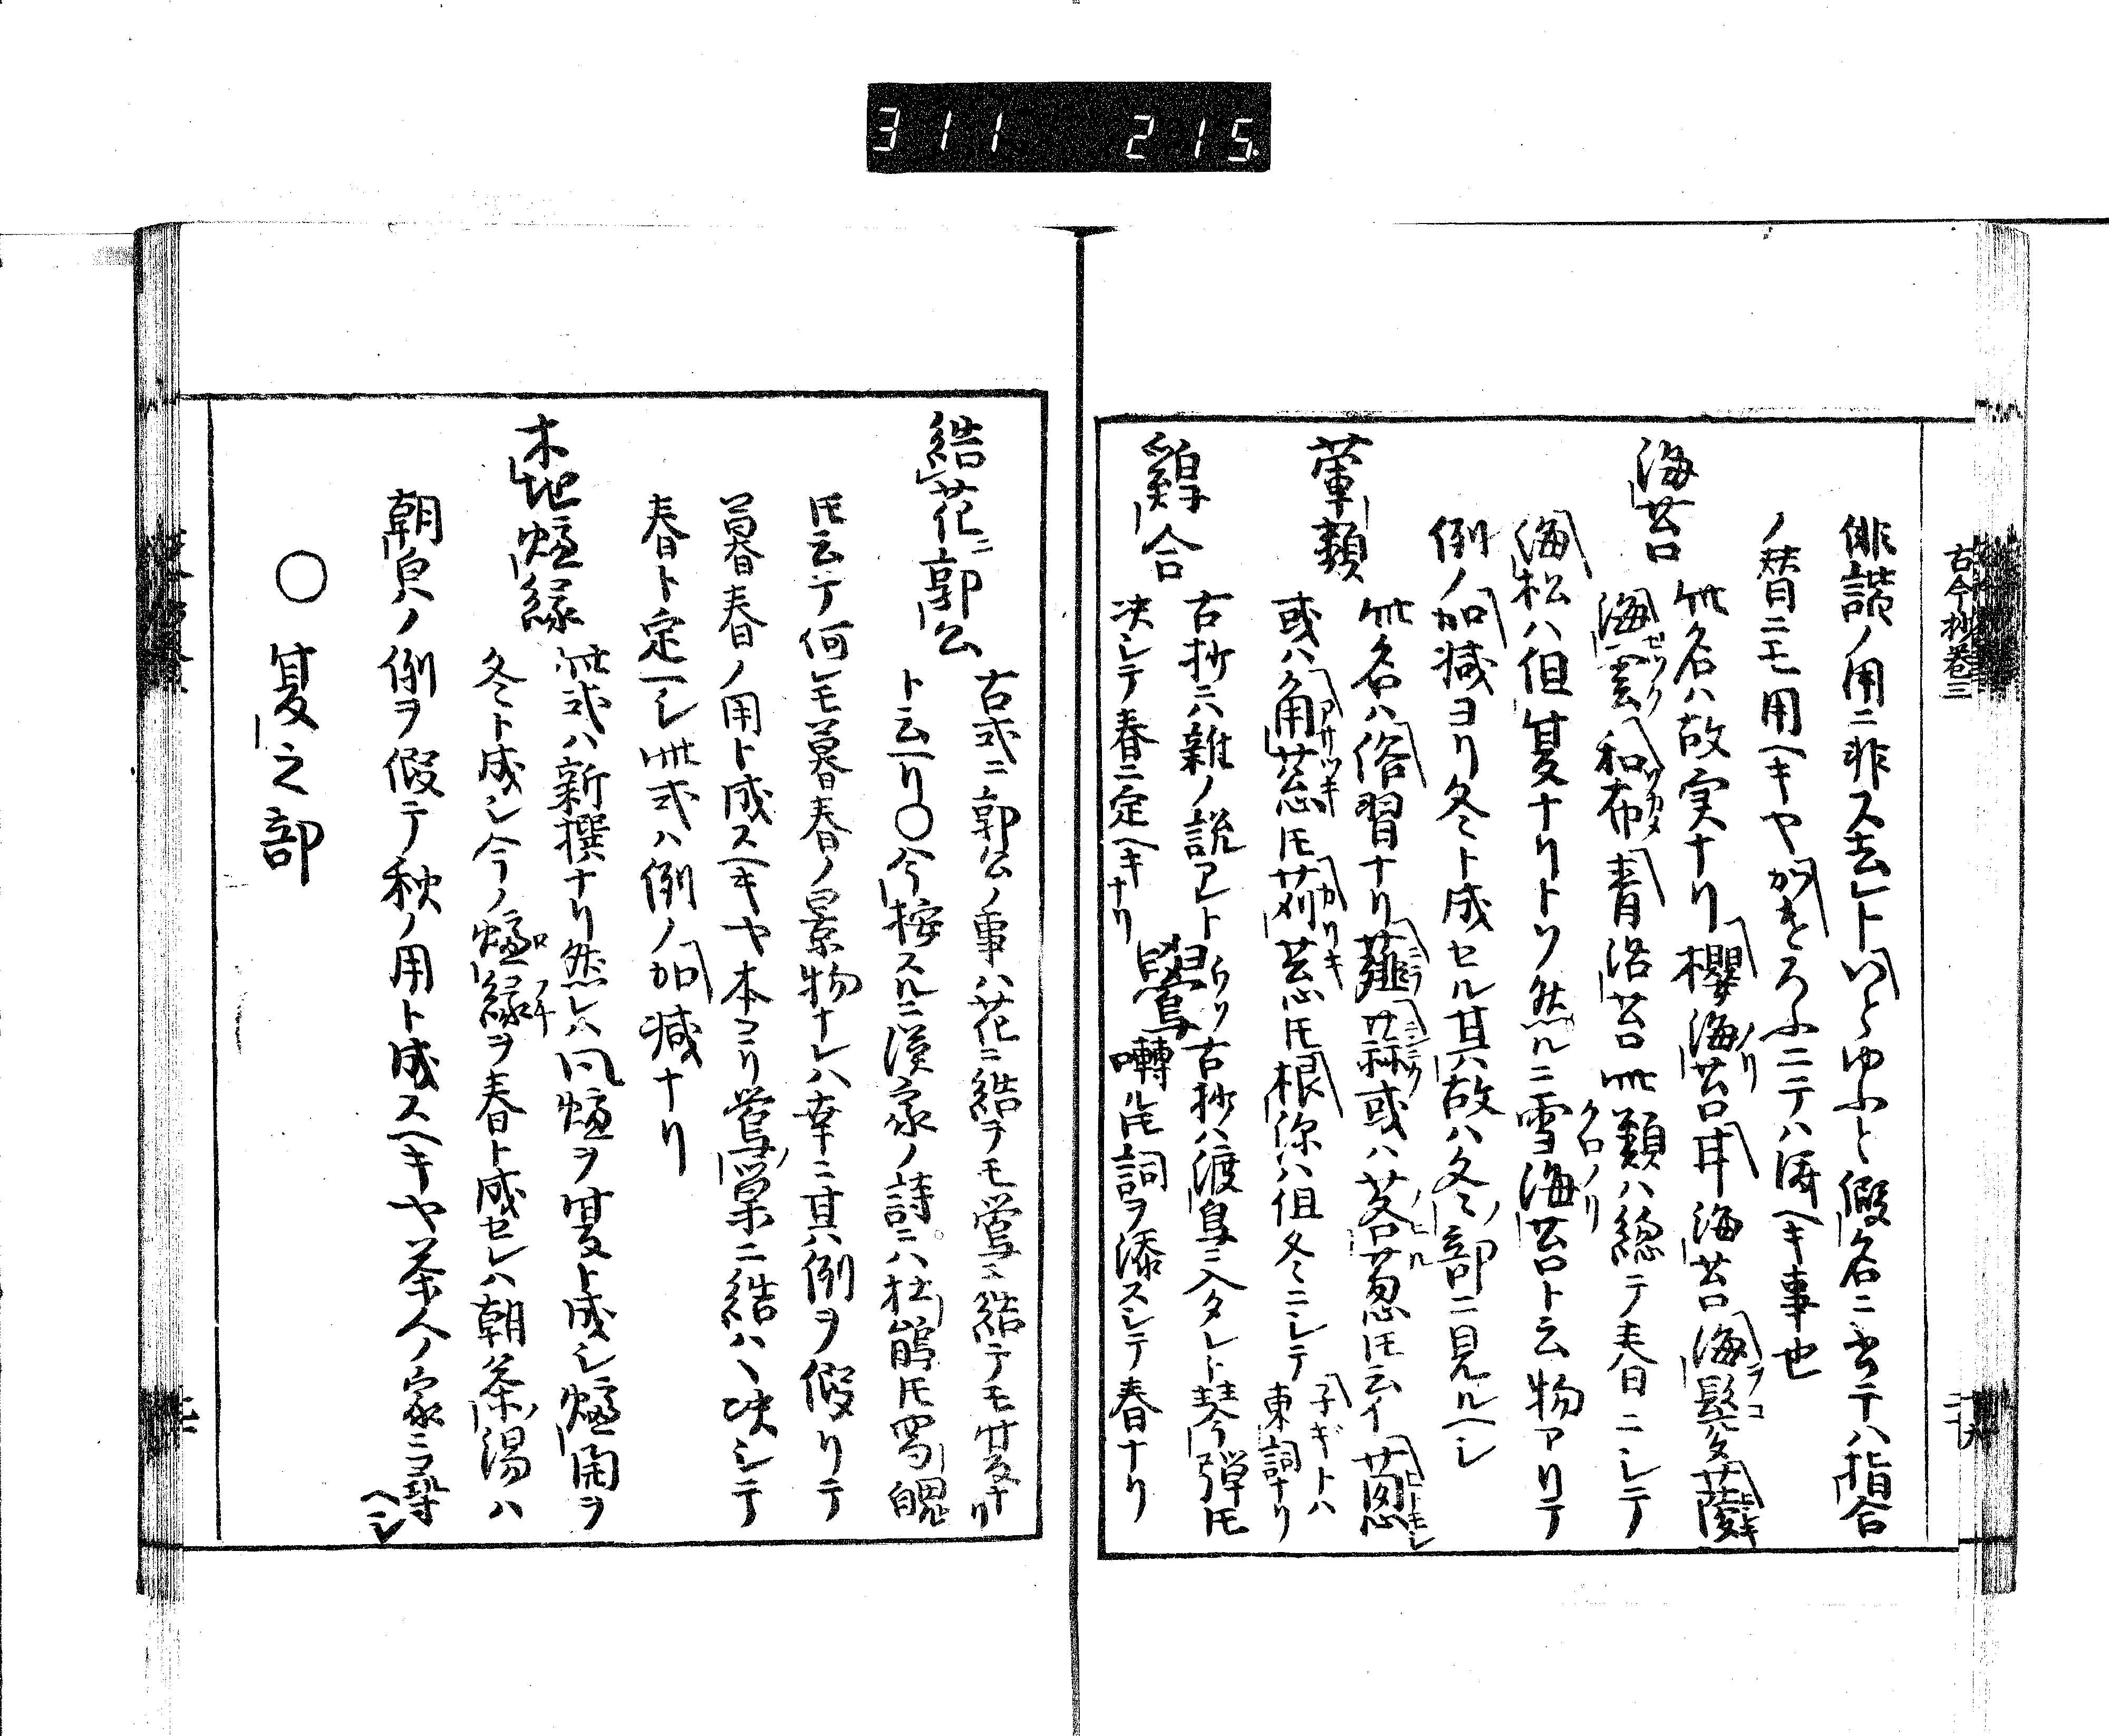 311 215
古今抄巻三
俳諧ノ用ニ非ス去レトいとゆふと假名ニ書テハ指合
ノ替目ニモ用ヘキヤかけろふニテハ憑ヘキ事也
海苔
此名ハ故実ナリ櫻海苔丼海苔海髪又薐
海雲和布青海苔此類ハ總テ春ニシテ
海松ハ但夏ナリトソ然ルニ雪海苔ト云物アリテ
例ノ加減ヨリ冬ト成セル其故ハ冬ノ部ニ見ルヘシ
葷類
此名ハ俗習ナリ薤蒜或ハ茖葱トモ云イ葱
或ハ角葱トモ苅葱トモ根深ハ但冬ニシテ 子ギトハ東詞ナリ
鷄合
古抄ニ雜ノ説アレト
决シテ春ニ定ヘキナリ
鸎
古抄ハ渡鳥ニ入タレト琴弾トモ
囀ルトモ詞ヲ添スシテ春ナリ
結花ニ郭公
古式ニ郭公ノ事ハ花ニ結ヲモ鶯ニ結テモ夏ナリ
ト云ヘリ〇今按スルニ漢家ノ詩ニハ杜鵑トモ蜀魄
トモ云テ何レモ暮春ノ景物ナレハ幸ニ其例ヲ假リテ
暮春ノ用ト成スヘキヤ本ヨリ鶯ノ巣ニ結ハヽ决シテ
春ト定ヘシ此式ハ例ノ加減ナリ
木地爐縁
此式ハ新撰ナリ然レハ風爐ヲ夏ト成シ爐開ヲ
冬ト成シ今ノ爐縁ヲ春ト成セレハ朝茶ノ湯ハ
朝㒵ノ例ヲ假テ秋ノ用ト成スヘキヤ茶人ノ家ニ尋ヘシ
〇 夏之部